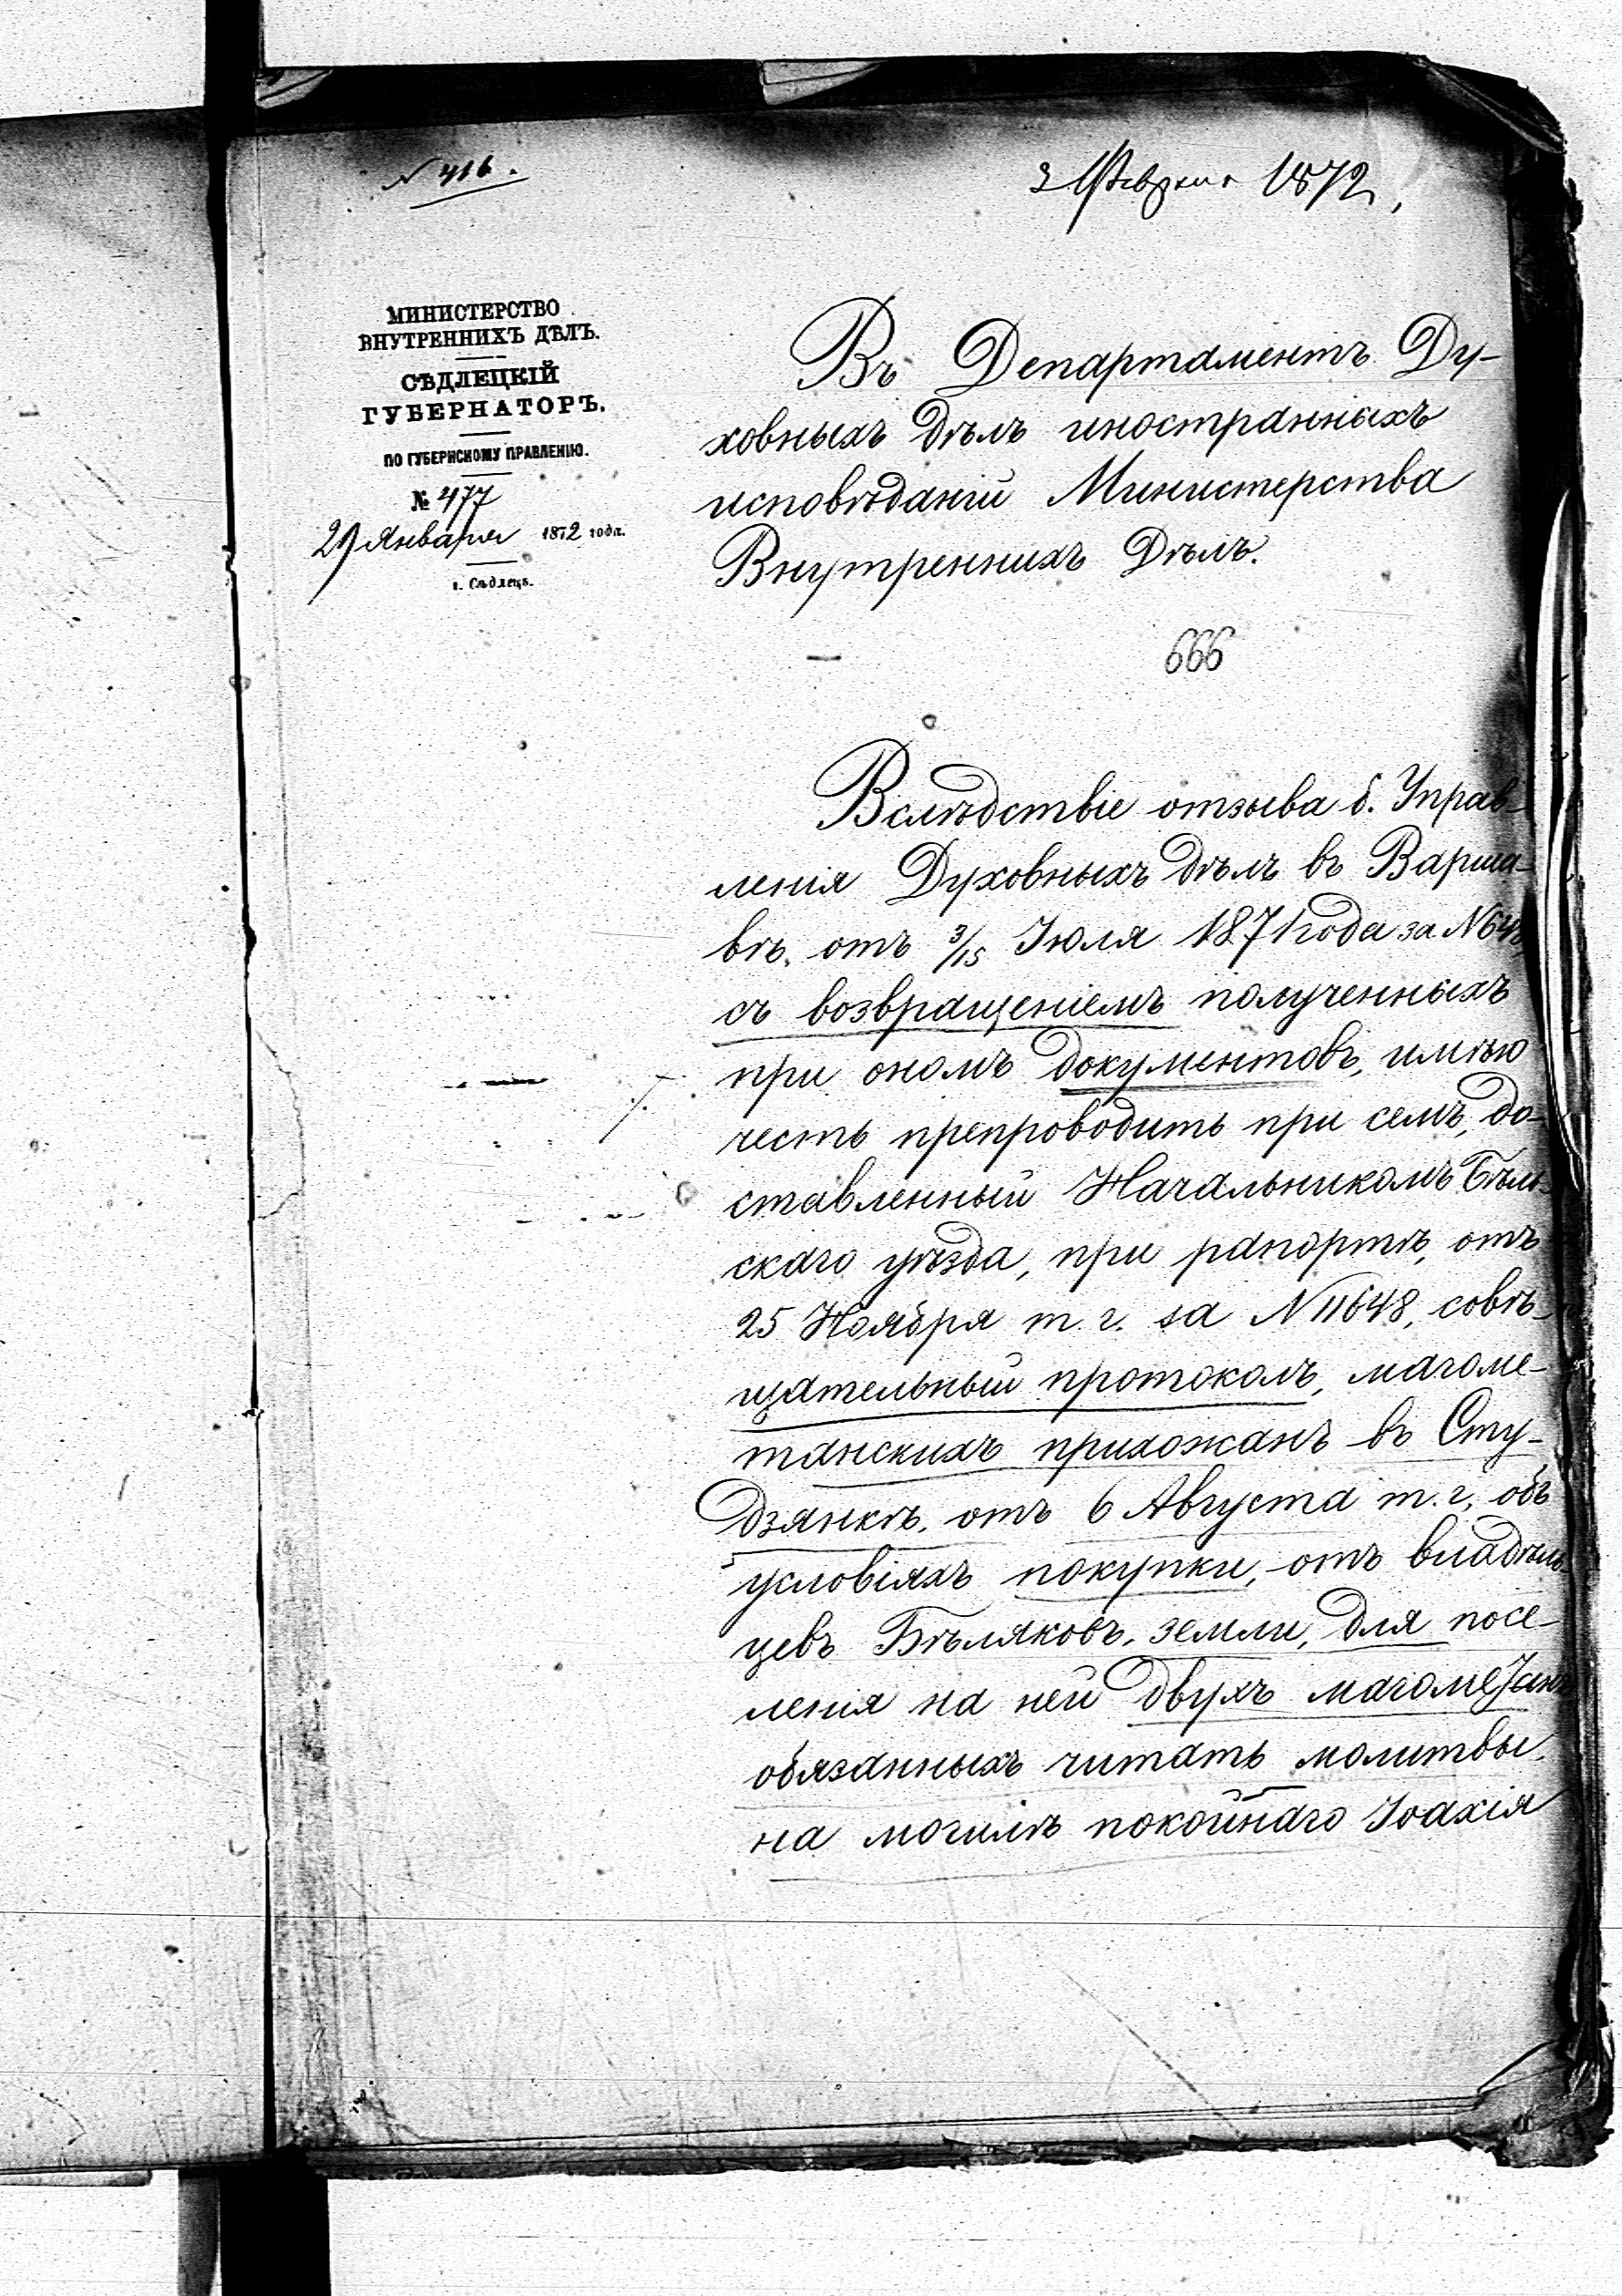 № 416.
3 Февраля 1872,
МИНИСТЕРСТВО
ВНУТРЕННИХЪ ДѢЛЪ.
СѢДЛЕЦКІЙ
ГУБЕРНАТОРЪ.
ПО ГУБЕРНСКОМУ ПРАВЛЕНІЮ.
№ 477
29 Января 1872 года.
г. Сѣдлецъ.
Въ Департаментъ Ду-
ховныхъ дѣлъ иностранныхъ
исповѣданій Министерства
Внутреннихъ Дѣлъ.
666
Вслѣдствіе отзыва б. Управ-
ленія Духовныхъ дѣлъ въ Варша-
вѣ, отъ 3/15 Іюля 1871 года за №
съ возвращеніемъ полученныхъ
при ономъ документовъ, имѣю
честь препроводить при семъ, до-
ставленный Начальникомъ Бѣль-
скаго уѣзда, при рапортѣ, отъ
25 Ноября т. г. за № 11648, совѣ-
щательный протоколъ, магоме-
танскихъ прихожанъ въ Сту-
дзянкѣ, отъ 6 Августа т. г., объ
условіяхъ покупки, отъ владѣль-
цевъ Бѣляковъ, земли, для посе-
ленія на ней двухъ магометанъ
обязанныхъ читать молитвы,
на могилѣ покойнаго Іоахія